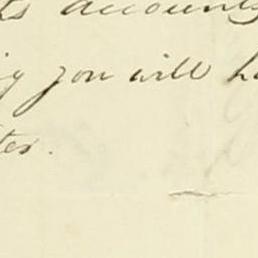 ts accounts
g you will h
ter.